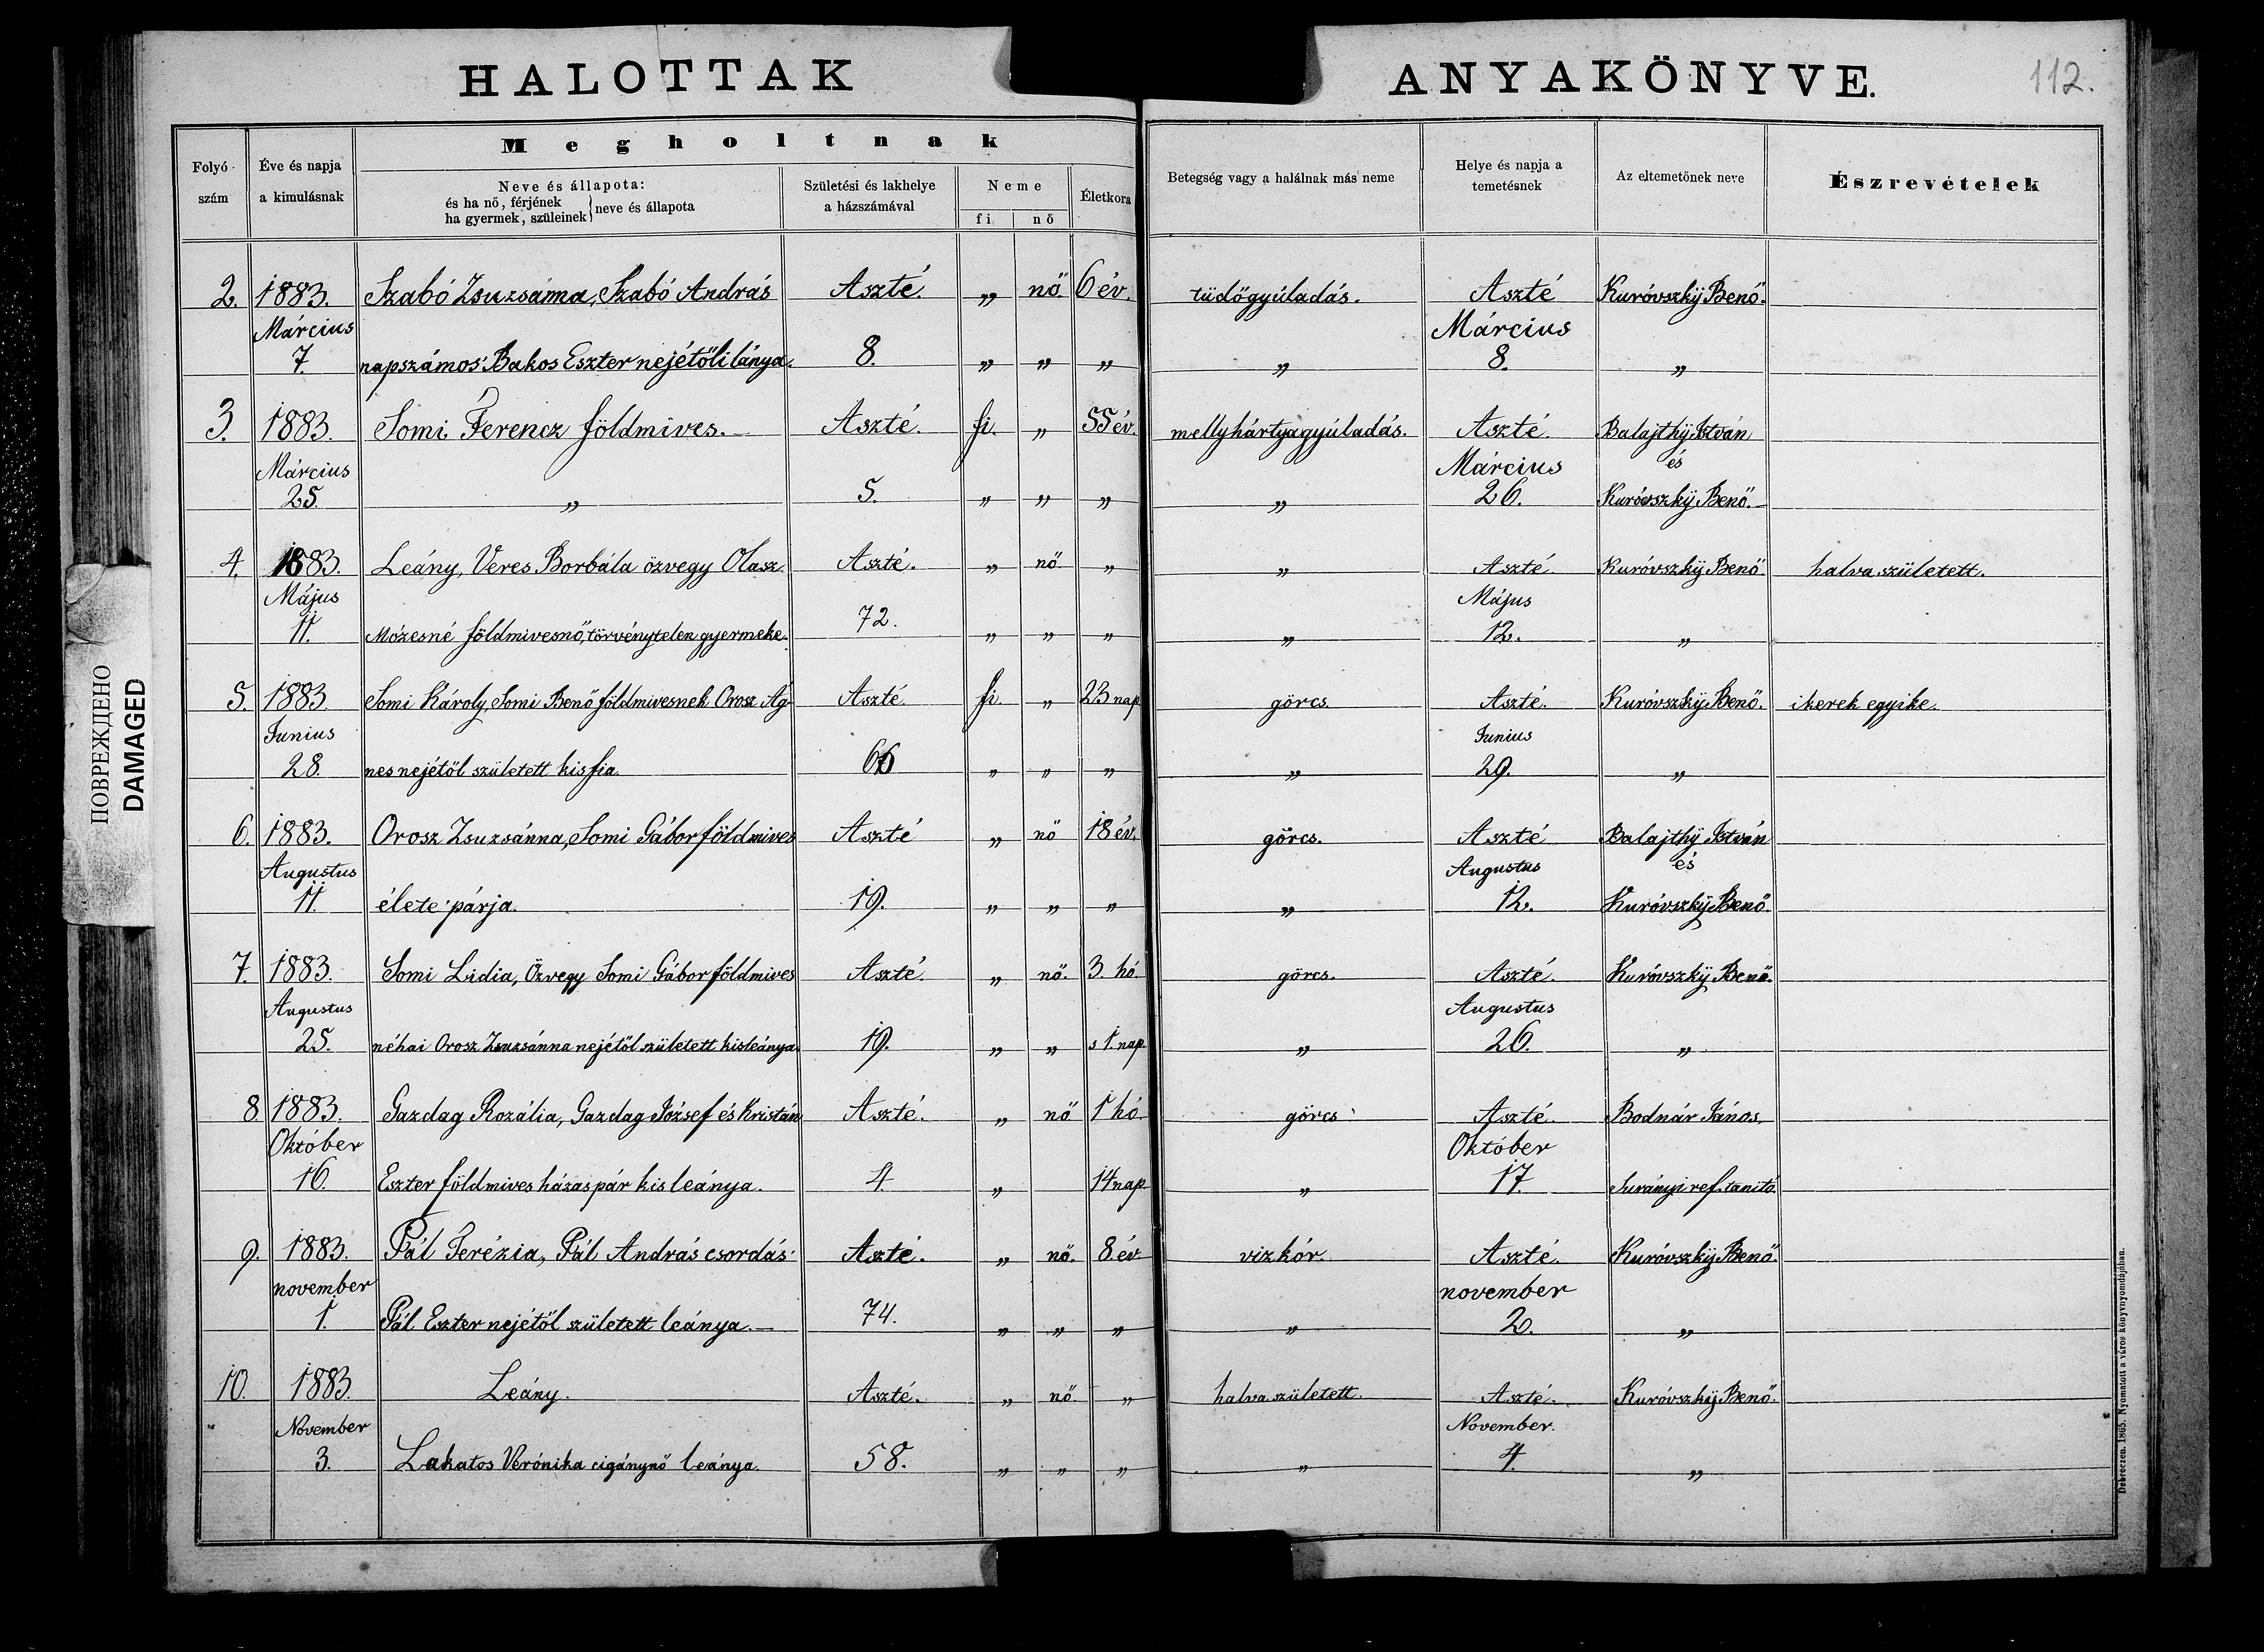 HALOTTAK ANYAKÖNYVE.
112.
Megholtnak
Folyó szám
Éve és napja a kimulásnak
Neve és állapota:
és ha nő, férjének
ha gyermek, szüleinek
neve és állapota
Születési és lakhelye a házszámával
Neme
fi nő
Életkora
Betegség vagy a halálnak más neme
Helye és napja a temetésnek
Az eltemetőnek neve
Észrevételek
2. 1883. Szabó Zsuzsánna, Szabó András Aszté. „ nő. 6 év. tüdőgyúladás. Aszté Kuróvszkÿ Benő.
Március Március
7. napszámos Bakos Eszter nejétőli lánya. 8. „ „ „ „ 8. „
3. 1883. Somi Ferencz földmives. Aszté. fi. „ 55 év. mellyhártyagyúladás. Aszté. Balajthÿ István
Március Március és
25. „ 5. „ „ „ „ 26. Kuróvszkÿ Benő.
4. 1883. Leány, Veres Borbála özvegy Olasz Aszté. „ nő „ „ Aszté Kuróvszkÿ Benő. halva született.
Május Május
11. Mózesné földmivesnő, törvénytelen gyermeke. 72. „ „ „ „ 12. „
5. 1883 Somi Károly, Somi Benő földmivesnek Orosz Ág- Aszté. fi. „ 23 nap görcs. Aszté. Kuróvszkÿ Benő. ikerek egyike.
Junius Junius
28. nes nejétől született kisfia. 66 „ „ „ „ 29. „
6. 1883. Orosz Zsuzsánna, Somi Gábor földmives Aszté „ nő 18 év. görcs. Aszté Balajthÿ István
Augustus Augustus és
11. élete párja. 19. „ „ „ „ 12. Kuróvszkÿ Benő.
7. 1883. Somi Lidia, Özvegy Somi Gábor földmives Aszté. „ nő. 3 hó. görcs. Aszté. Kuróvszkÿ Benő.
Augustus Augustus
25. néhai Orosz Zsuzsánna nejétől született kisleánya. 19. „ „ s 1. nap. „ 26. „
8. 1883. Gazdag Rozália, Gazdag József és Kristán Aszté. „ nő 1 hó görcs Aszté. Bodnár János,
Október Október
16. Eszter földmives házaspár kis leánya. 4. „ 14 nap „ 17. Surányi ref. tanító
9. 1883. Pál Terézia, Pál András csordás Aszté. „ nő. 8 év vizkór. Aszté. Kuróvszkÿ Benő.
november november
1. Pál Eszter nejétől született leánya. 74. „ „ „ „ 2. „
10. 1883. Leány. Aszté. „ nő „ halva született. Aszté. Kuróvszkÿ Benő.
November November.
3. Lakatos Verónika cigánynő leánya. 58. „ „ „ „ 4. „
Debreczen. 1865. Nyomatott a város könyvnyomdájában.
ПОВРЕЖДЕНО
DAMAGED